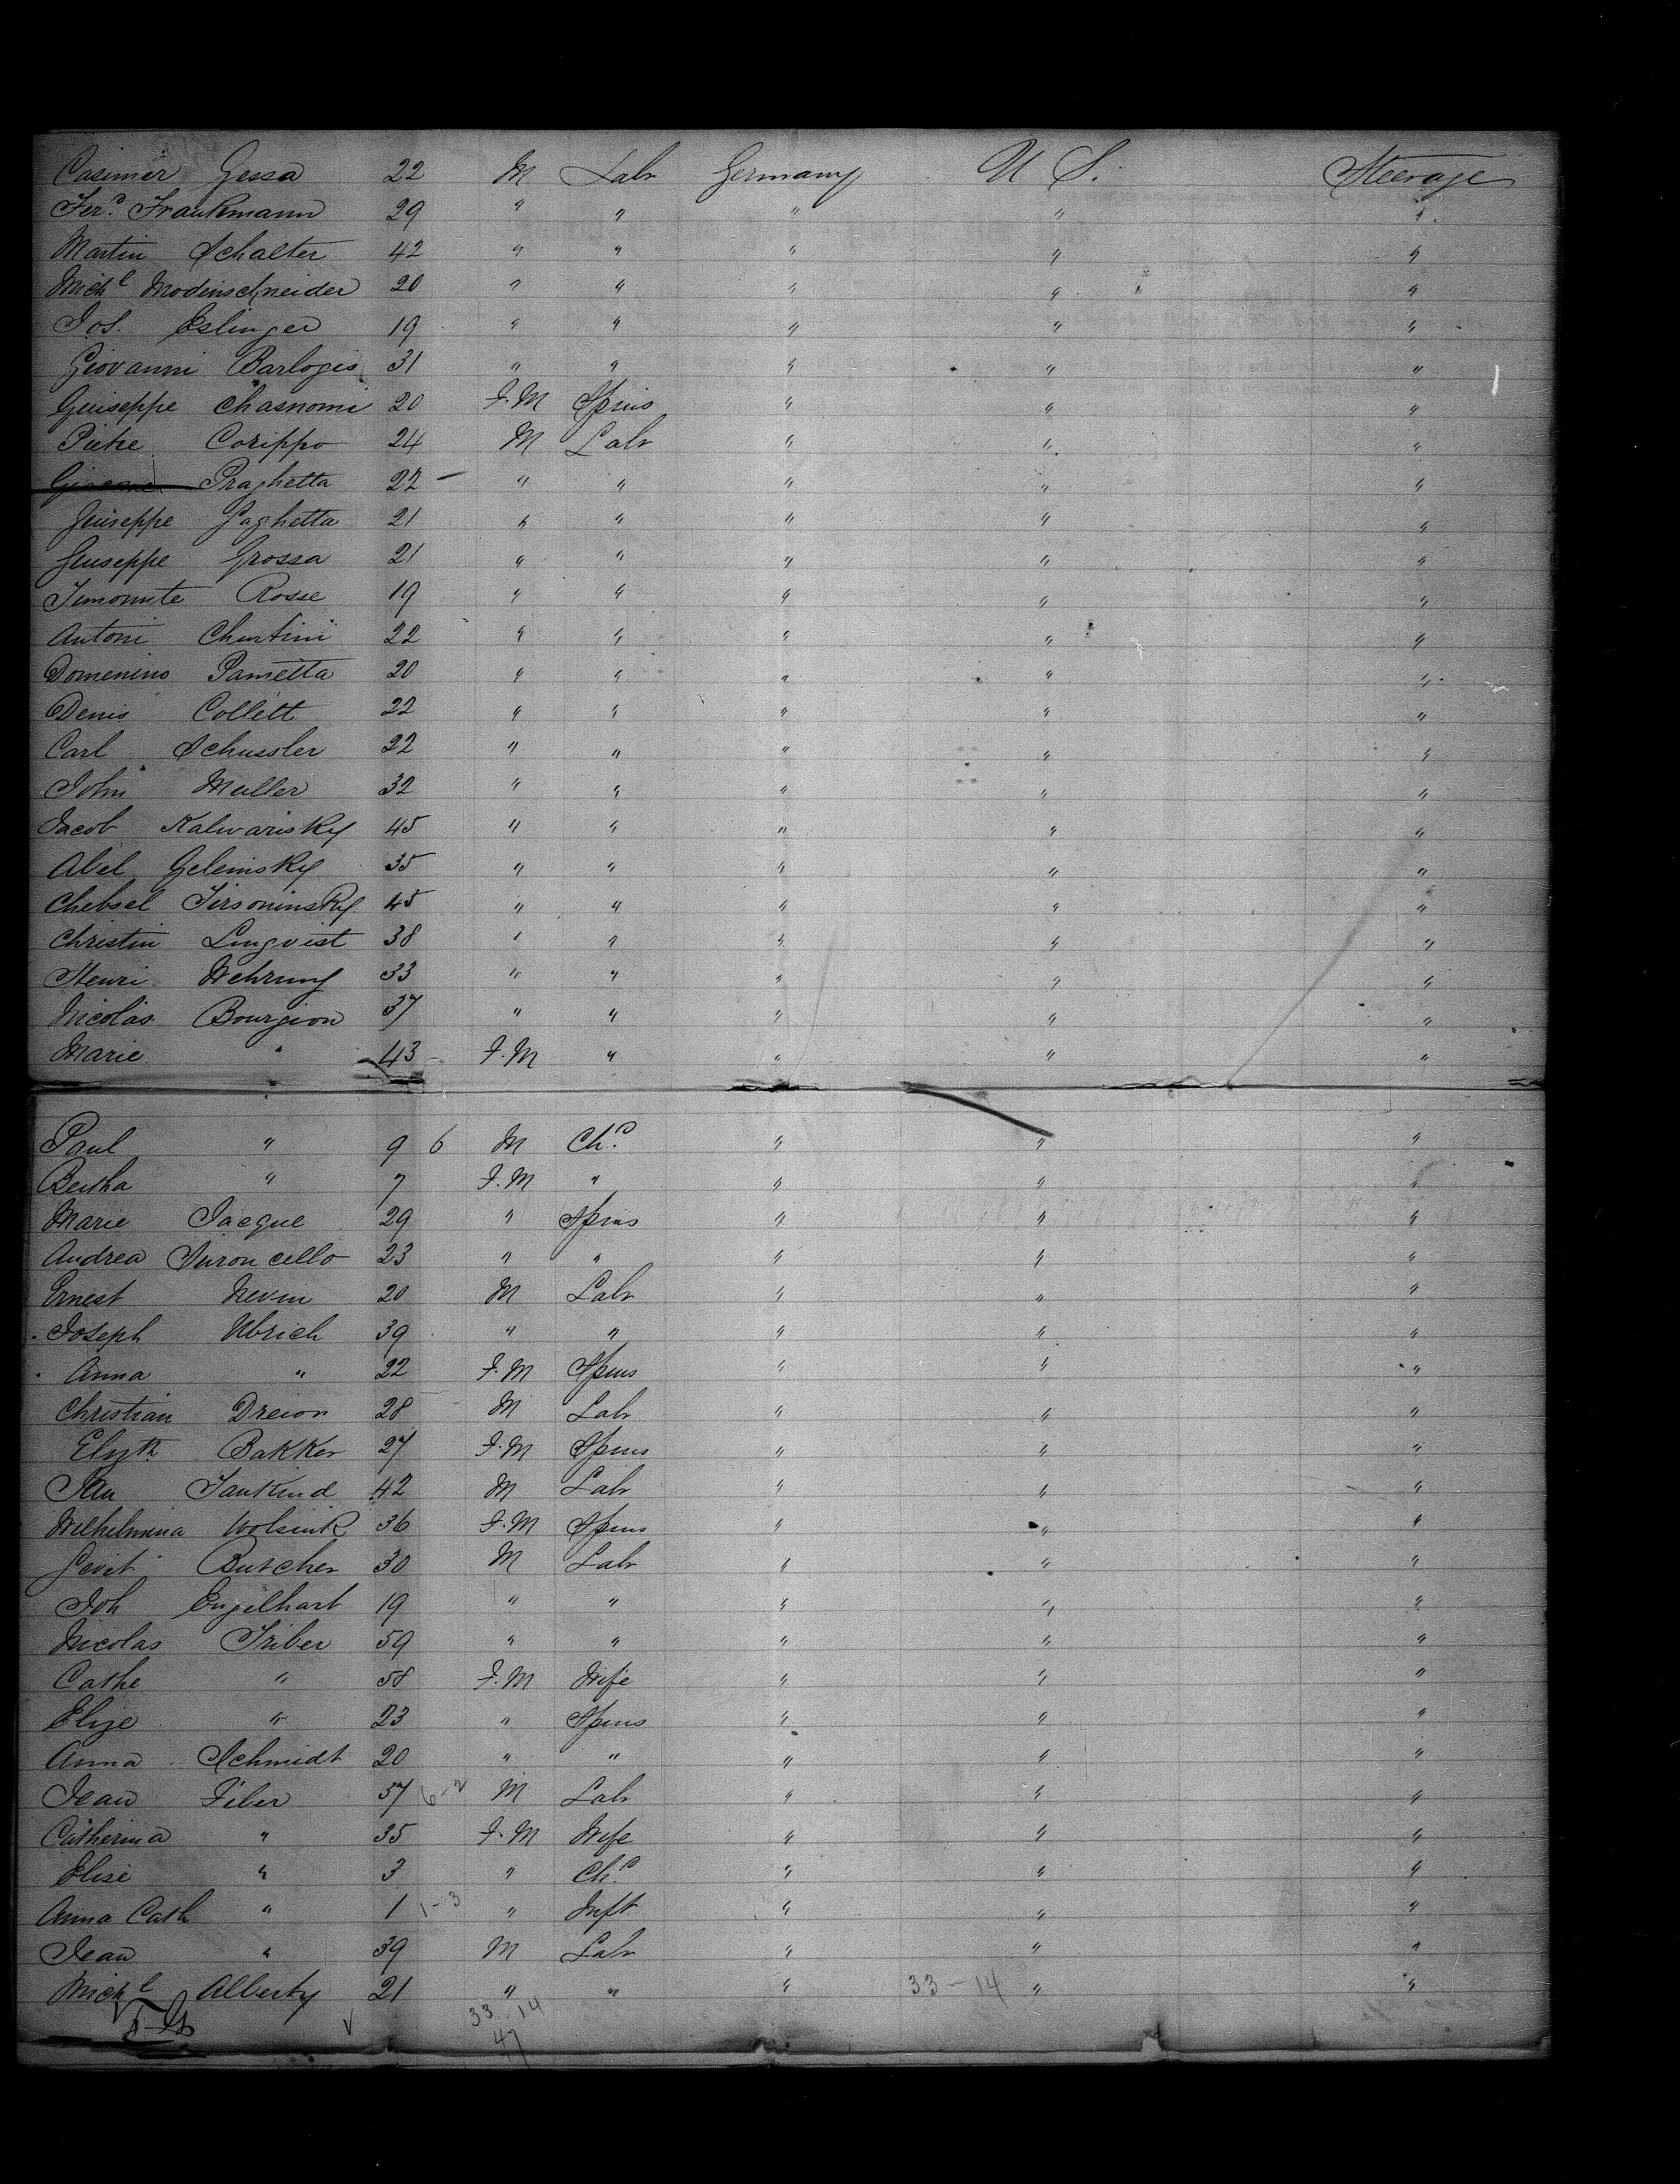 Casimer Gessa 22 M Labr Germany U S. Steerage
Ferd. Frankmann 29 " " " " "
Martin Schalter 42 " " " " "
Michl Modenschneider 20 " " " " "
Jos. Eslinger 19 " " " " "
Giovanni Barlogis 31 " " " " "
Guiseppe Chasnomi 20 F.M Spins " " "
Pietre Corippo 24 M Labr " " "
Praghetta 22 – " " " " "
Guiseppe Paghetta 21 " " " " "
Guiseppe Grossa 21 " " " " "
Rosse 19 " " " " "
Antoni Churtini 22 " " " " "
Domenino Pametta 20 " " " " "
Denis Collett 22 " " " " "
Carl Schussler 22 " " " " "
John Muller 32 " " " " "
Jacob Kalwarisky 45 " " " " "
Abel Gelemsky 35 " " " " "
Chebsel 45 " " " " "
Christin Lingvist 38 " " " " "
Henri Wehrung 33 " " " " "
Nicolas Bourgion 37 " " " " "
Marie " 43 F.M " " " "
Paul " 9 6 M Chd. " " "
Bertha " 7 F.M " " " "
Marie Jacque 29 " Spins " " "
Andrea 23 " " " " "
Ernest Nevin 20 M Labr " " "
Joseph Ulrich 39 " " " " "
Anna " 22 F.M Spins " " "
Christian Dreion 28 M Labr " " "
Elizth Bakker 27 F.M Spins " " "
Jan 42 M Labr " " "
Wilhelmina Wolsink 36 F.M Spins " " "
Gevit Butcher 30 M Labr " " "
Joh Engelhart 19 " " " " "
Nicolas Triber 59 " " " " "
Cathe " 58 F.M Wife " " "
Elize " 23 " Spins " " "
Anna Schmidt 20 " " " " "
Jean Fiber 37 6-2 M Labr " " "
Catherina " 35 F.M Wife " " "
Elise " 3 " Chd. " " "
Anna Cath " 1 1-3 " Inft " " "
Jean " 39 M Labr " " "
Michl Alberty 21 " " " 33-14 " "
33-14
47